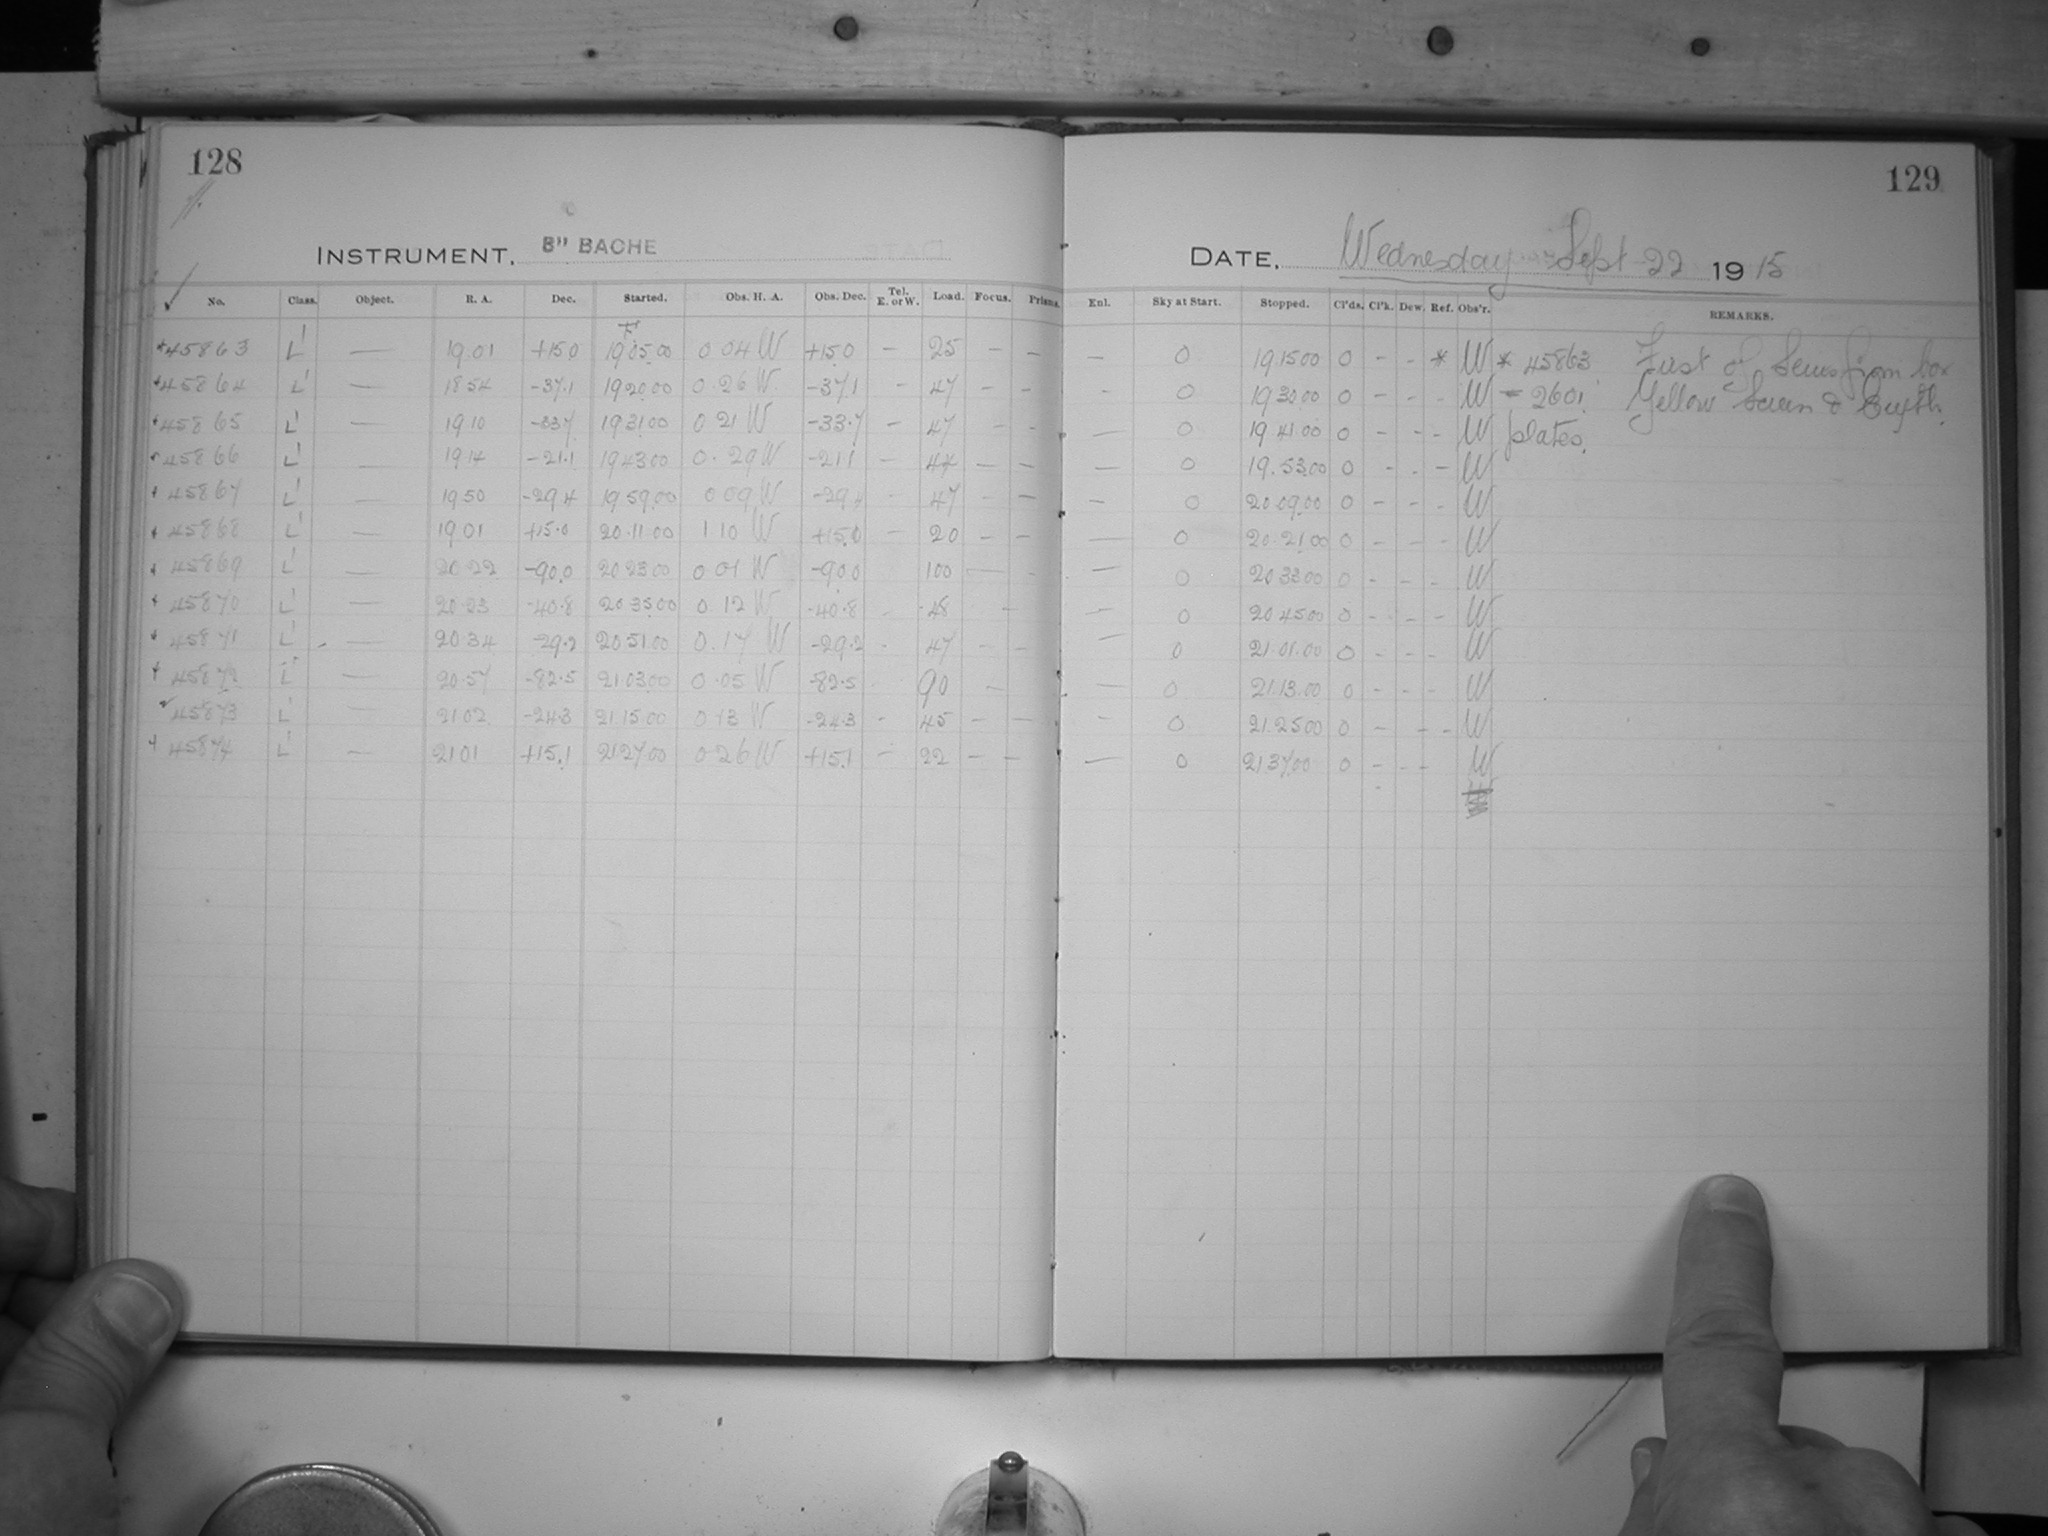 128
129
INSTRUMENT, 8" BACHE
DATE, Wednesday Sept 22 1915
No. Class. Object. R. A. Dec. Started. Obs. H. A. Obs. Dec. Tel. E. or W. Load. Focus. Prisms. Enl. Sky at Start. Stopped. Cl'ds. Cl'k. Dew. Ref. Obs'r. REMARKS.
45863 L' — 19.01 +15.0 19.05.00 0.04 W +15.0 – 25 – – – 0 19.15.00 0 – – * W * 45863 First of Series from box
45864 L' — 18 54 -37.1 19 20.00 0.26 W -37.1 – 47 – – – 0 19 30.00 0 – – – W = 2601 Yellow
45865 L' — 19 10 -33.7 19 31.00 0 21 W -33.7 – 47 – – — 0 19 41.00 0 – – – W plates.
45866 L' — 19 14 -21.1 19 43.00 0.29 W -21.1 – 47 – – — 0 19.53.00 0 – – – W
45867 L' — 19 50 -29.4 19 59.00 0 09 W -29.4 – 47 – – – 0 20 09.00 0 – – – W
45868 L' — 19 01 +15.0 20.11.00 1 10 W +15.0 – 20 – – — 0 20.21.00 0 – – – W
45869 L' — 20 22 -90.0 20 23.00 0 01 W -90.0 100 — – — 0 20 33.00 0 – – – W
45870 L' — 20 23 -40.8 20 35.00 0 12 W -40.8 48 – — 0 20 45.00 0 – – – W
45871 L' — 20 34 -29.2 20 51.00 0.17 W -29.2 – 47 – – — 0 21.01.00 0 – – – W
45872 L' — 20 57 -82.5 21 03.00 0.05 W -82.5 90 – — 0 21.13.00 0 – – – W
45873 L' — 21 02 -24.3 21.15.00 0 13 W -24.3 – 45 – — – 0 21.25.00 0 – – – W
45874 L' — 21 01 +15.1 21 27.00 0 26 W +15.1 – 22 – – — 0 21 37.00 0 – – – W